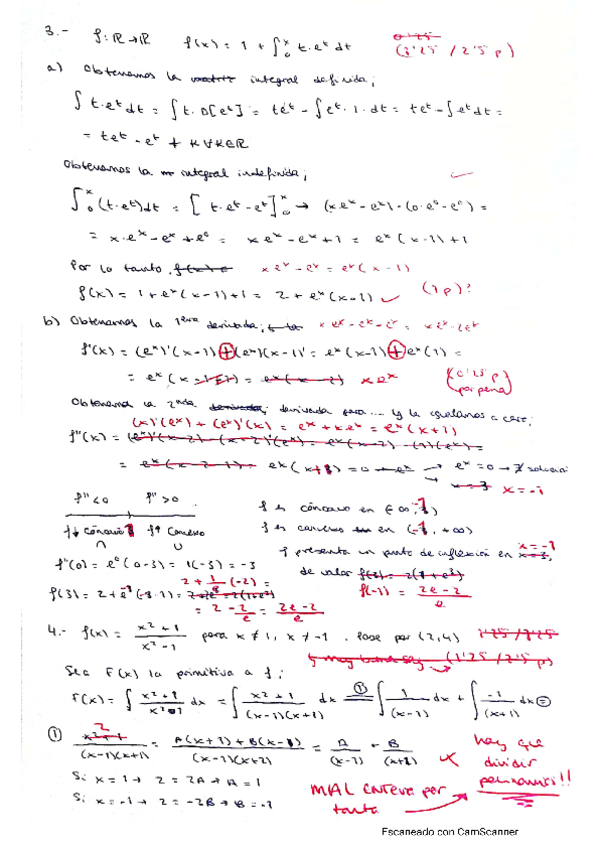 3.- f: ℝ→ℝ f(x) = 1 + ∫₀ˣ t·eᵗ dt 0'25
(3'25 / 2'5 p)
a) Obtenemos la integral definida;
∫ t·eᵗ dt = ∫ t·D[eᵗ] = teᵗ - ∫ eᵗ·1·dt = teᵗ - ∫ eᵗ dt =
= teᵗ - eᵗ + K ∀K∈ℝ
Obtenemos la integral indefinida;
∫₀ˣ (t·eᵗ)dt = [t·eᵗ - eᵗ]₀ˣ → (x·eˣ - eˣ) - (0·e⁰ - e⁰) =
= x·eˣ - eˣ + e⁰ = xeˣ - eˣ + 1 = eˣ(x-1) + 1
Por lo tanto, f(x) = xeˣ - eˣ = eˣ(x-1)
f(x) = 1 + eˣ(x-1) + 1 = 2 + eˣ(x-1) ✓ (1 p)?
b) Obtenemos la 1era derivada;
f'(x) = (eˣ)'(x-1) + (eˣ)(x-1)' = eˣ(x-1) + eˣ(1) =
= eˣ(x-1+1) = eˣ(x-2) xeˣ (0'25 p)
(por pena)
Obtenemos la 2nda derivada, derivada y la igualamos a cero;
(x)'(eˣ) + (eˣ)'(x) = eˣ + xeˣ = eˣ(x+1)
f''(x) =
= eˣ(x+1) = 0 → eˣ = 0 → ∄ solución
x = 3 x = -1
f'' < 0 f'' > 0 f es cóncavo en (-∞, -1)
f↓ cóncavo f↑ Convexo f es convexo en (-1, +∞)
∩ ∪ f presenta un punto de inflexión en x=3, x = -1
f''(0) = e⁰(0-3) = 1(-3) = -3 de valor
2 + 1/e (-2) =
f(3) = 2 + e f(-1) = 2e-2/e
= 2 - 2/e = 2e-2/e
4.- f(x) = x²+1/x²-1 para x ≠ 1, x ≠ -1. Pase por (2,4) 1'25/2'25
(1'25 / 2'5 p)
Sea F(x) la primitiva a f;
F(x) = ∫ x²+1/x²-1 dx = ∫ x²+1/(x-1)(x+1) dx =① ∫ 1/(x-1) dx + ∫ -1/(x+1) dx =
① 2 x²+1/(x-1)(x+1) = A(x+1)+B(x-1)/(x-1)(x+1) = A/(x-1) + B/(x+1) hay que
dividir
primero!!
Si x = 1 → 2 = 2A → A = 1
Si x = -1 → 2 = -2B → B = -1 MAL
tanto
Escaneado con CamScanner